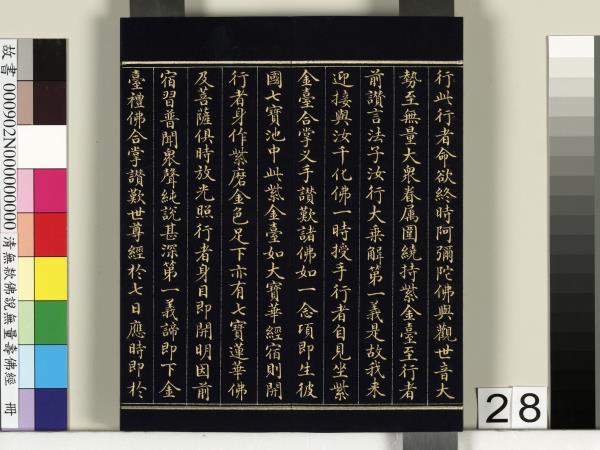 行此行者命欲終時阿彌陀佛與觀世音大
勢至無量大衆眷属圍繞持紫金臺至行者
前讃言法子汝行大乗解第一義是故我来
迎接與汝千化佛一時授手行者自見坐紫
金臺合掌叉手讃歎諸佛如一念頃即生彼
國七寶池中此紫金臺如大寶華經宿則開
行者身作紫磨金色足下亦有七寶蓮華佛
及菩薩俱時放光照行者身目即開明因前
宿習普聞衆聲純說甚深第一義諦即下金
臺禮佛合掌讃歎世尊經於七日應時即於
故書 000902N000000000 清無款佛說無量壽佛經 冊
28